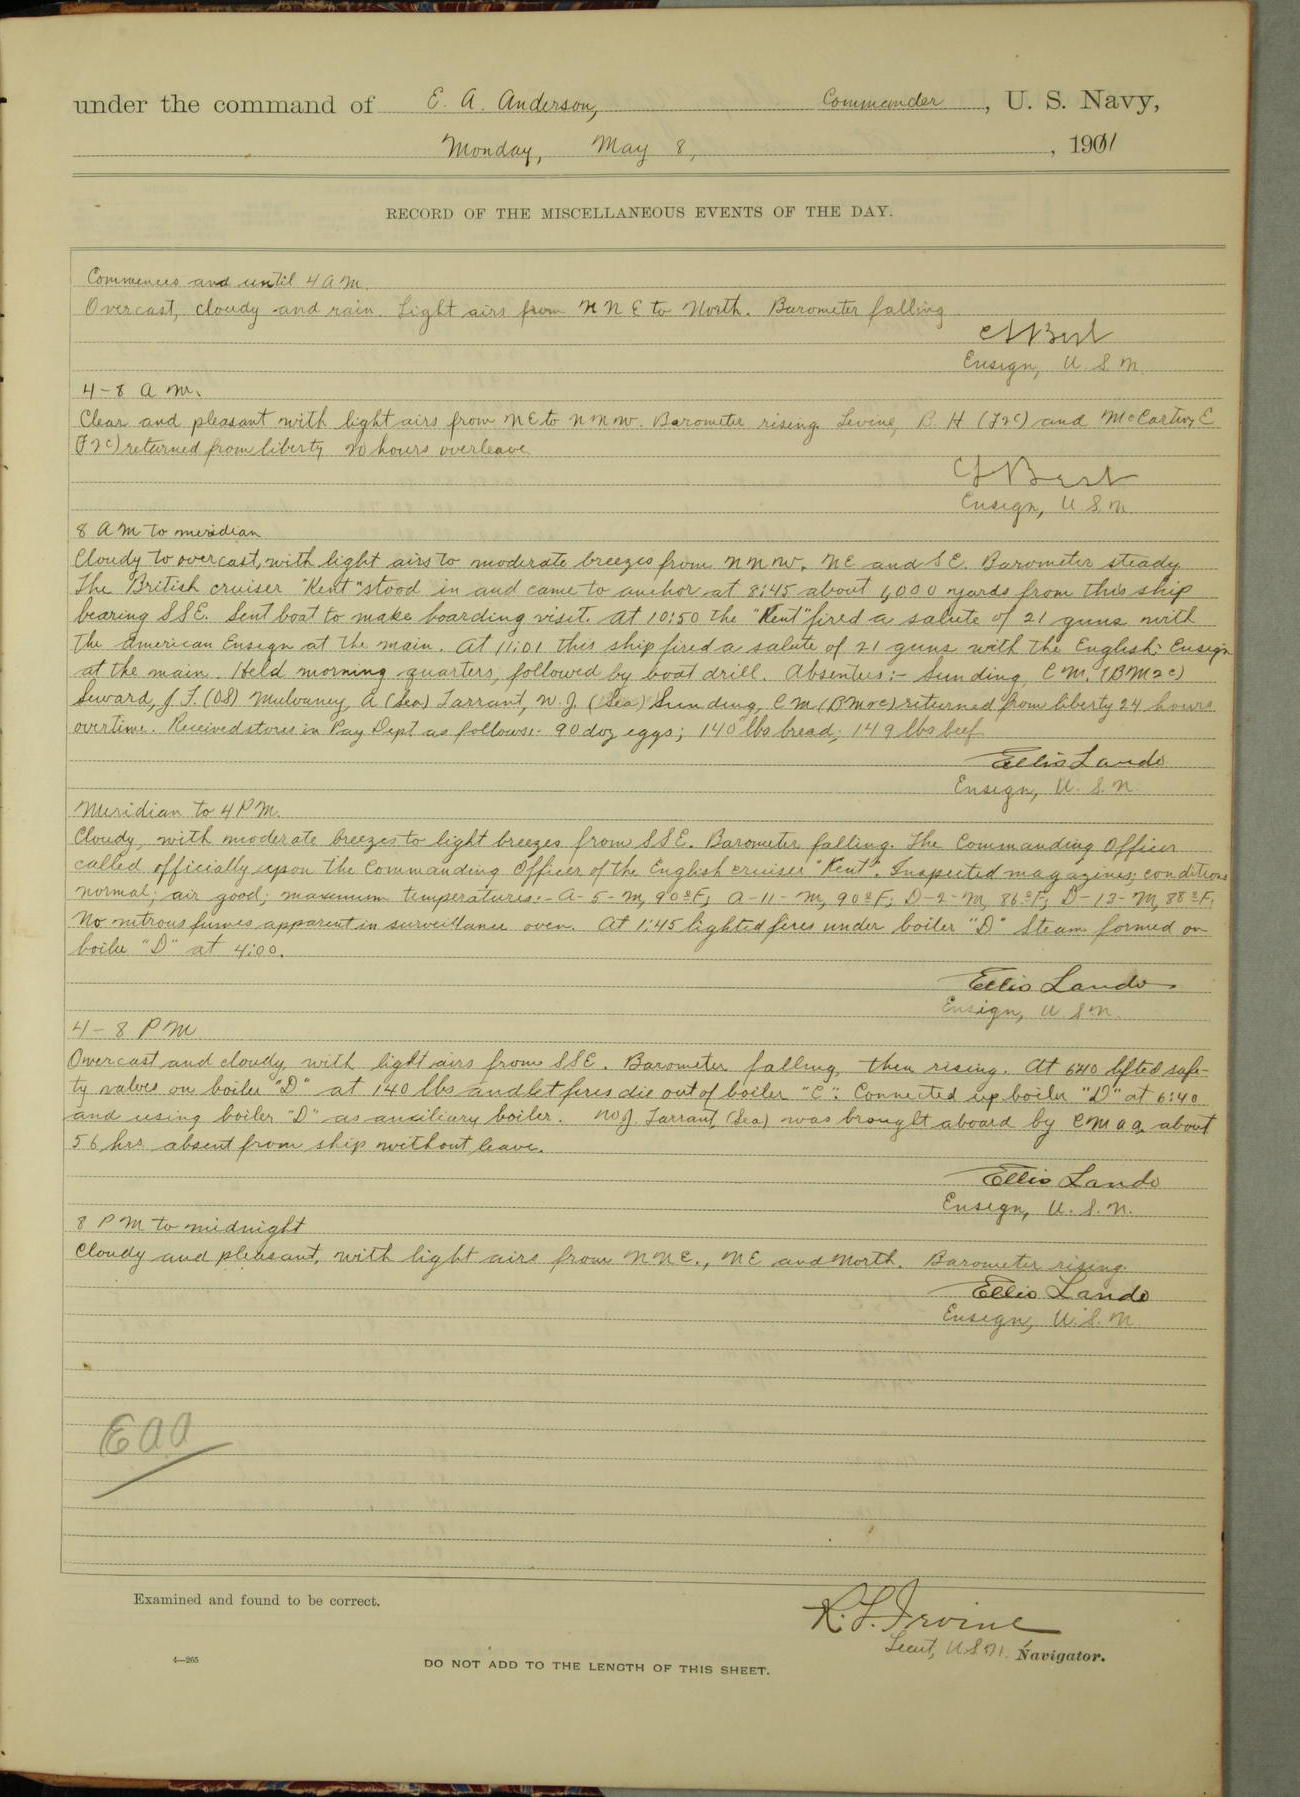 under the command of E. A. Anderson, Commander, U. S. Navy,
Monday, May 8, , 1911
RECORD OF THE MISCELLANEOUS EVENTS OF THE DAY.
Commences and until 4 A M.
Overcast, cloudy and rain. Light airs from N N E to North. Barometer falling
Ensign, U. S. N.
4-8 A M.
Clear and pleasant with light airs from NE to N N W. Barometer rising. Levine, B. H (F2c) and McCarthy, E
(F2c) returned from liberty 20 hours overleave.
Ensign, U. S. N.
8 A M to meridian
Cloudy to overcast, with light airs to moderate breezes from N N W. NE and SE. Barometer steady.
The British cruiser "Kent" stood in and came to anchor at 8:45 about 1,000 yards from this ship
bearing SSE. Sent boat to make boarding visit. At 10:50 the "Kent" fired a salute of 21 guns with
the American Ensign at the main. At 11:01 this ship fired a salute of 21 guns with the English Ensign
at the main. Held morning quarters, followed by boat drill. Absentees:- Sunding, C M. (BM2c)
Seward, J F. (OS) Mulvaney, A (Sea) Tarrant, W. J. (Sea) Sunding, C M (BM2c) returned from liberty 24 hours
overtime. Received stores in Pay Dept as follows:- 90 doz eggs; 140 lbs bread; 149 lbs beef
Ellis Lando
Ensign, U. S. N.
Meridian to 4 P M.
Cloudy, with moderate breezes to light breezes from SSE. Barometer falling. The Commanding Officer
called officially upon the Commanding Officer of the English cruiser "Kent". Inspected magazines; conditions
normal; air good; maximum temperatures:- A-5-M, 90°F; A-11-M, 90°F; D-2-M, 86°F; D-13-M, 88°F.
No nitrous fumes apparent in surveillance oven. At 1:45 lighted fires under boiler "D" Steam formed on
boiler "D" at 4:00.
Ellis Lando
Ensign, U. S. N.
4-8 P M
Overcast and cloudy, with light airs from SSE. Barometer falling, then rising. At 6:40 lifted safe-
ty valves on boiler "D" at 140 lbs and let fires die out of boiler "C". Connected up boiler "D" at 6:40
and using boiler "D" as auxiliary boiler. W J. Tarrant, (Sea) was brought aboard by C M a a about
56 hrs absent from ship without leave.
Ellis Lando
Ensign, U. S. N.
8 P M to midnight
Cloudy and pleasant, with light airs from N N E., NE and North. Barometer rising.
Ellis Lando
Ensign, U. S. N.
E A A
Examined and found to be correct.
R. F. Irvine
Lieut, U S N, Navigator.
4—265
DO NOT ADD TO THE LENGTH OF THIS SHEET.